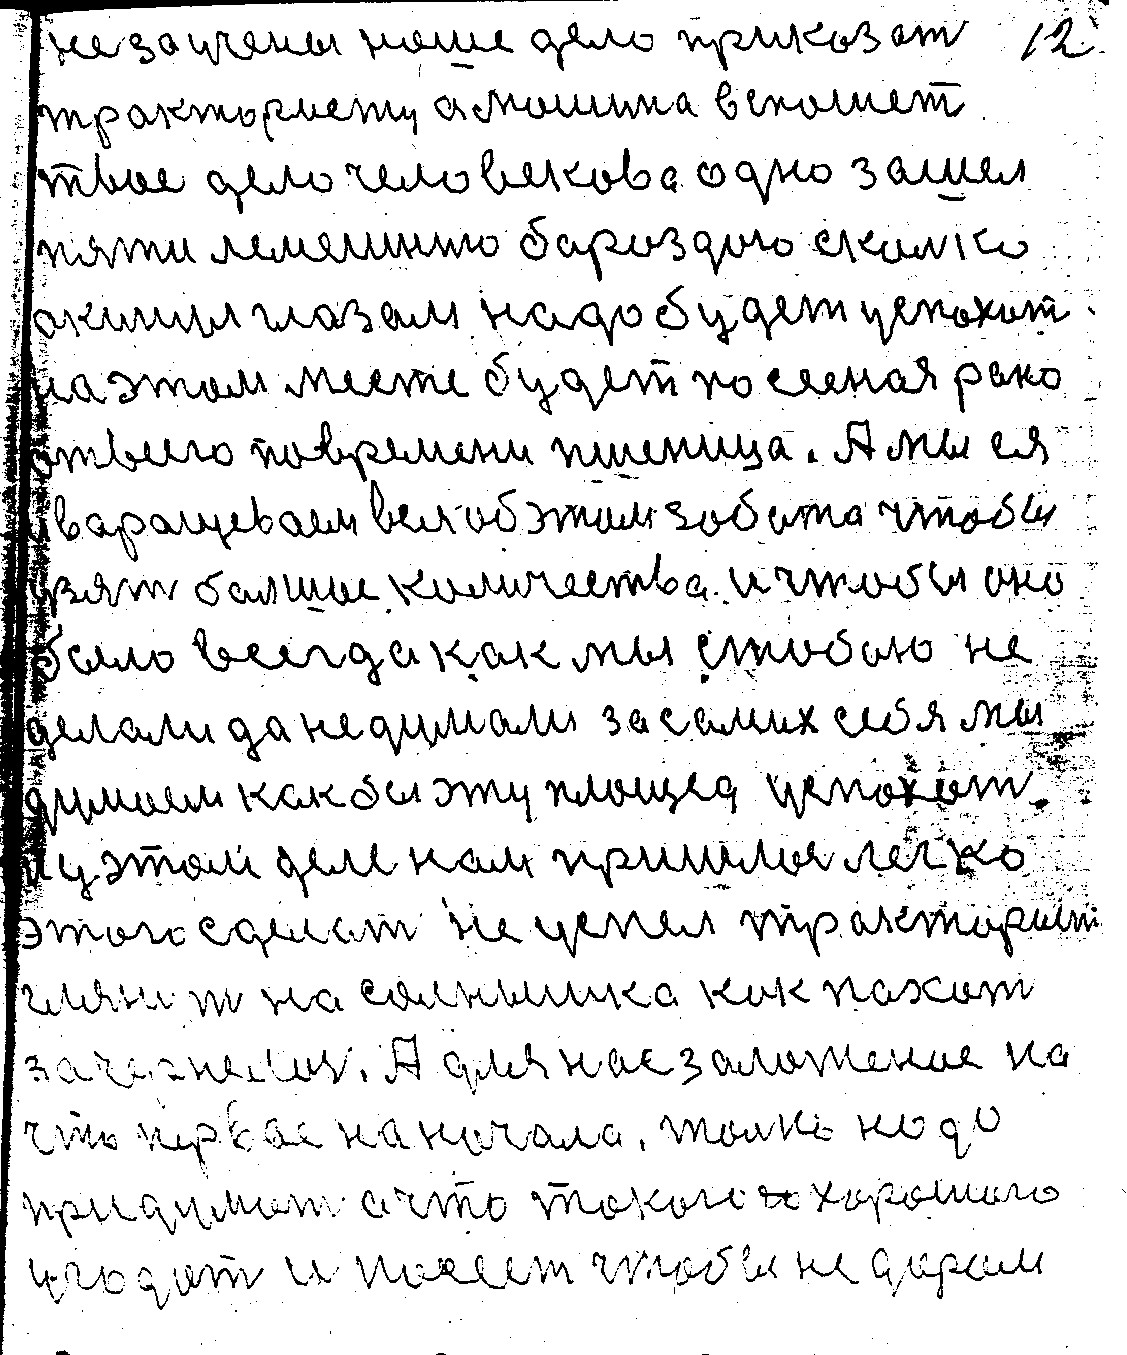 не заучены наше дело приказат 12
трактористу а машина вспошет
твое дело человекова одно зашел
пяти лемешнию бароздою сколко
окинул глазам надо будет успохат
на этом месте будет посееная рано
отвсего повремени пшеница. А мы ся
вваращеваем вся об этом забота чтобы
узят болшое количества и чтобы оно
было всегда как мы стобою не
делали да не думали за самих себя мы
думаем как бы эту площед успохат.
И у этом деле нам пришлося легко
этого сделат не успел тракторист
глянит на солнышка как пахат
зачернелися. А для нас заложеное на
что первое на начала, толко надо
придумат а что такого го хорошого
угодат и посеет чтобы не даром